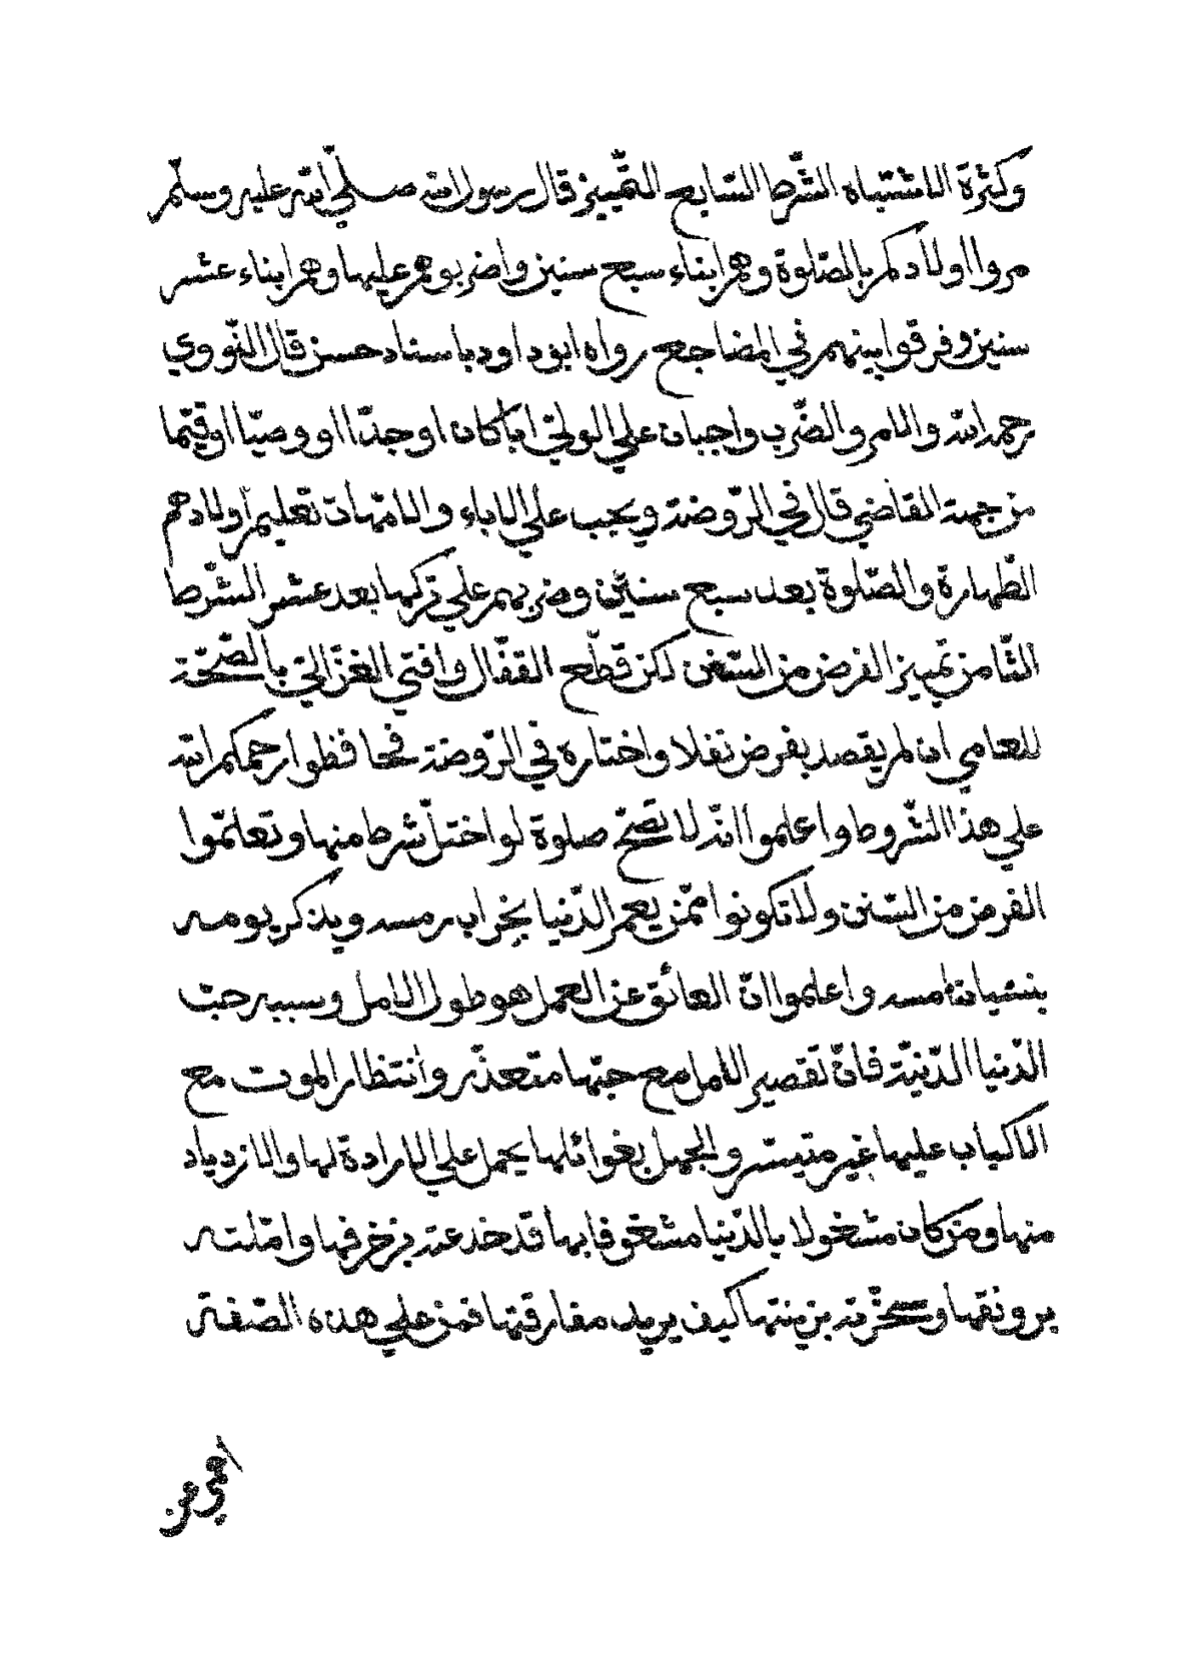 وكثرة الاشتباه الشّرط السّابع التّمييز قال رسول الله صلّي الله عليه وسلّم
مروا اولادكم بالصّلوة وهم ابناء سبع سنين واضربوهم عليها وهم ابناء عشر
سنين وفرقوا بينهم في المضاجع رواه ابو داود باسناد حسن قال النّووي
رحمه الله والامر والضّرب واجبان علي الوليّ ابا كان او جدّا او وصيّا او قيّما
من جهة القاضي قال في الرّوضة ويجب علي الاباء والامّهات تعليم اولادهم
الطّهارة والصّلوة بعد سبع سنين وضربهم علي تركها بعد عشر الشّرط
الثّامن تمييز الفرض من السّنن لكن قطّع القفّال وافتي الغزّاليّ بالصّحّة
للعامي ان لم يقصد بفرض نفلا واختاره في الرّوضة فحافظوا رحمكم الله
علي هذا الشّروط واعلموا انّه لا تصحّ صلوة لو اختلّ شرط منها وتعلمّوا
الفرض من السّنن ولا تكونوا ممّن يعمر الدّنيا بخراب رمسه ويذكر يومه
بنسيان امسه واعلموا انّ العائق عن العمل هو طول الامل وسببه حبّ
الدّنيا الدّنيّة فانّ تقصير الامل مع حبّها متعذّر وانتظار الموت مع
الاكباب عليها غير متيسّر والجهل بغوائلها يحمل علي الارادة لها والازدياد
منها ومن كان مشغولا بالدّنيا مشغوفا بها قد خدعته بزخرفها وامّلته
برونقها وسخّرته بزينتها كيف يريد مفارقتها فمن علي هذه الصّفة
اعمي عن